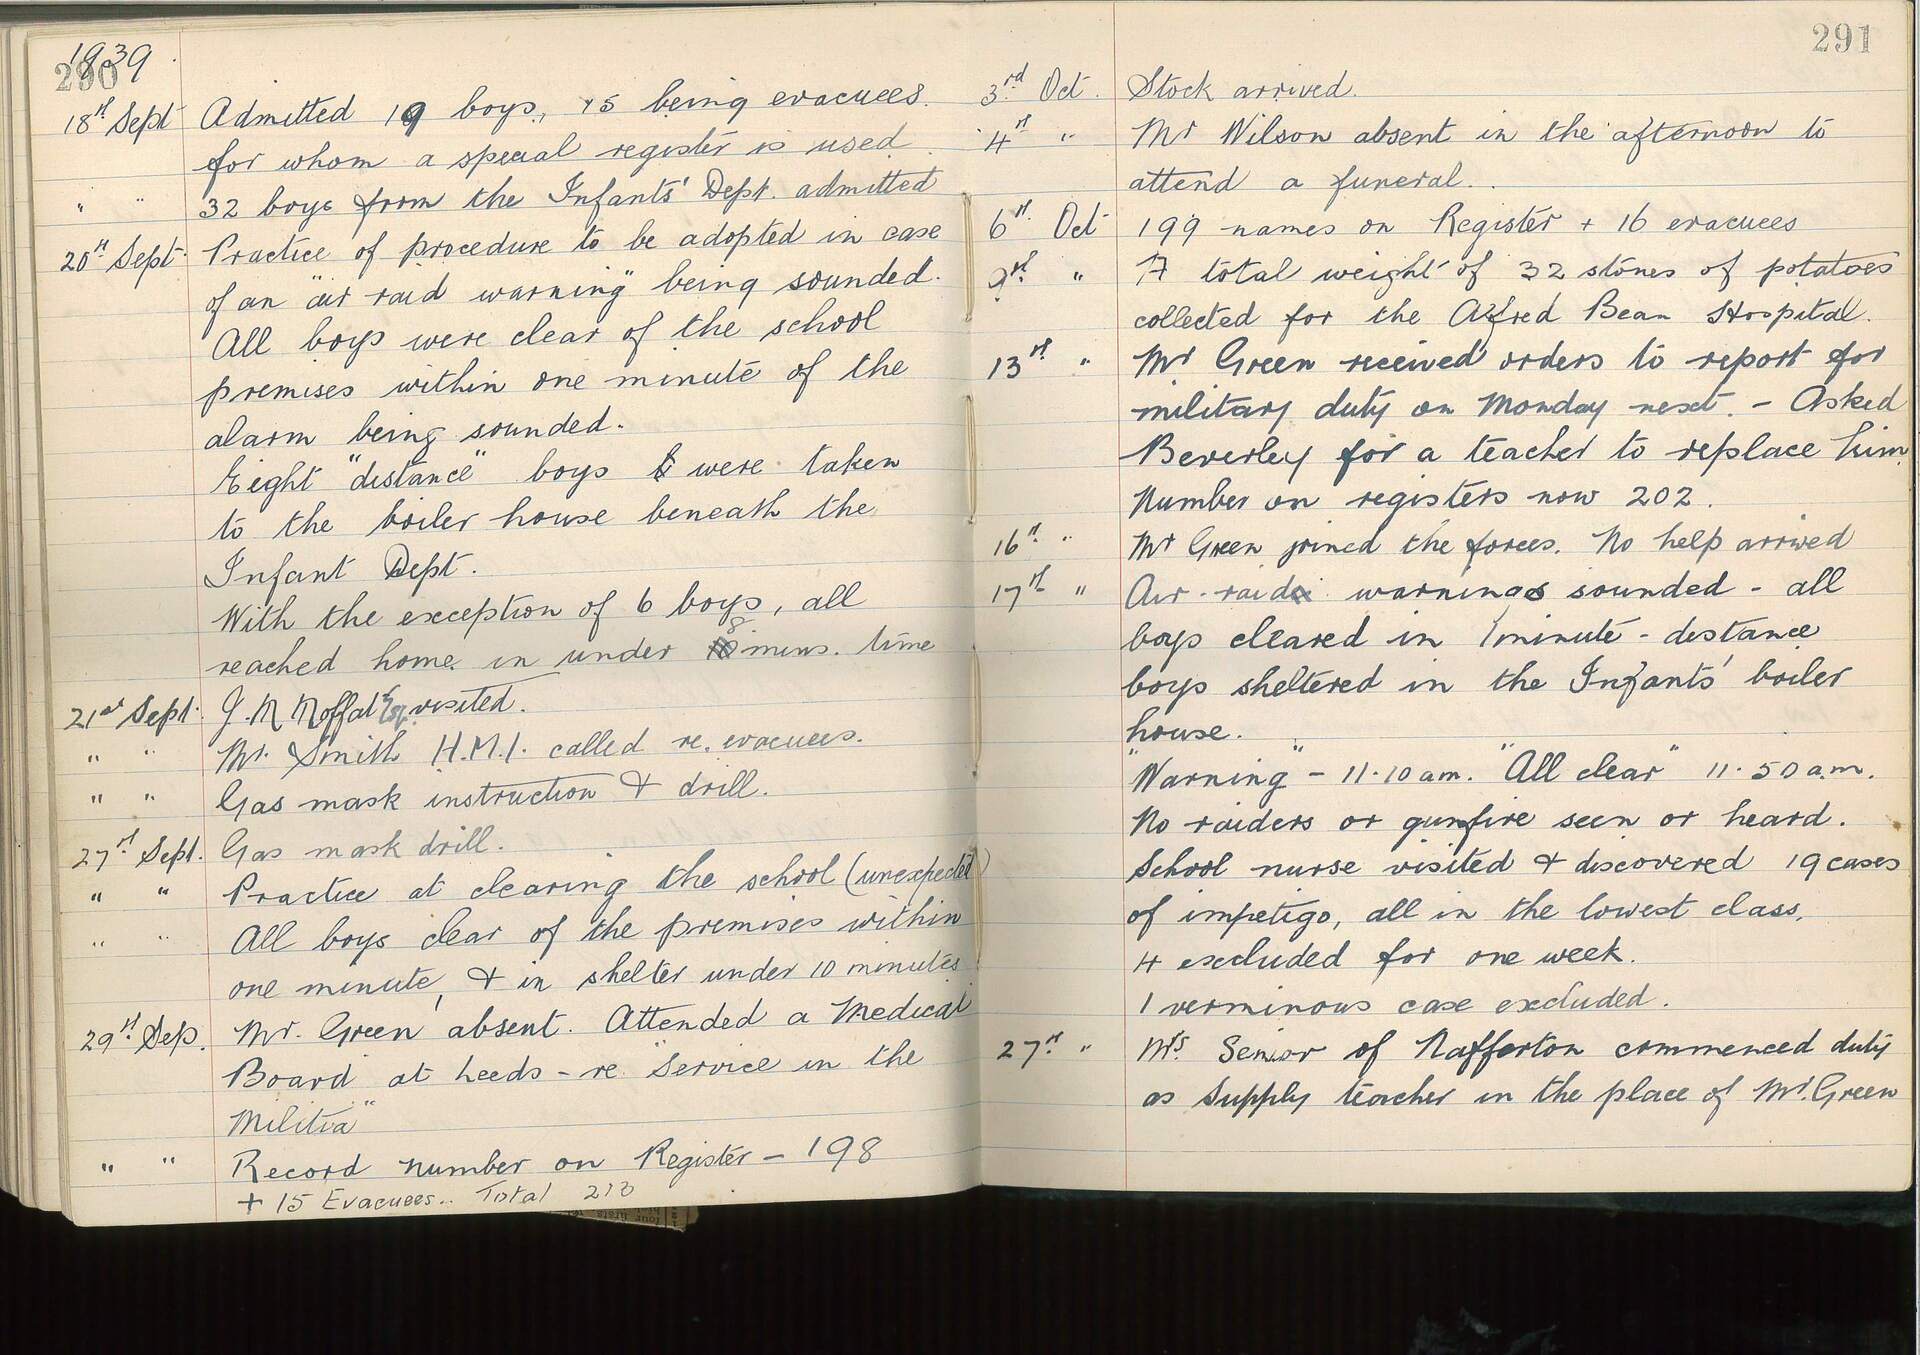 1939
290
18th Sept Admitted 19 boys, 15 being evacuees.
for whom a special register is used.
" " 32 boys from the Infants' Dept. admitted
20th Sept. Practice of procedure to be adopted in case
of an "air raid warning" being sounded.
All boys were clear of the school
premises within one minute of the
alarm being sounded.
Eight "distance" boys were taken
to the boiler house beneath the
Infant Dept.
With the exception of 6 boys, all
reached home in under 8 mins. time
21st Sept. J. N. Moffat Esq. visited.
" " Mr. Smith H.M.I. called re. evacuees.
" " Gas mask instruction & drill.
27th Sept. Gas mask drill.
" " Practice at clearing the school (unexpected)
" " All boys clear of the premises within
one minute, & in shelter under 10 minutes
29th Sep. Mr. Green absent. Attended a Medical
Board at Leeds - re "Service in the
Militia"
" " Record number on Register - 198
+ 15 Evacuees.. Total 213
291
3rd Oct. Stock arrived.
4th " Mr Wilson absent in the afternoon to
attend a funeral.
6th Oct 199 names on Register + 16 evacuees
9th " A total weight of 32 stones of potatoes
collected for the Alfred Bean Hospital.
13th " Mr Green received orders to report for
military duty on Monday next. - Asked
Beverley for a teacher to replace him
Number on registers now 202.
16th " Mr Green joined the forces. No help arrived
17th " Air-raid warnings sounded - all
boys cleared in 1 minute - distance
boys sheltered in the Infants' boiler
house.
"Warning" - 11.10 am. "All clear" 11.50 am.
No raiders or gunfire seen or heard.
School nurse visited & discovered 19 cases
of impetigo, all in the lowest class.
4 excluded for one week.
1 verminous case excluded.
27th " Mrs. Senior of Nafferton commenced duty
as Supply teacher in the place of Mr. Green